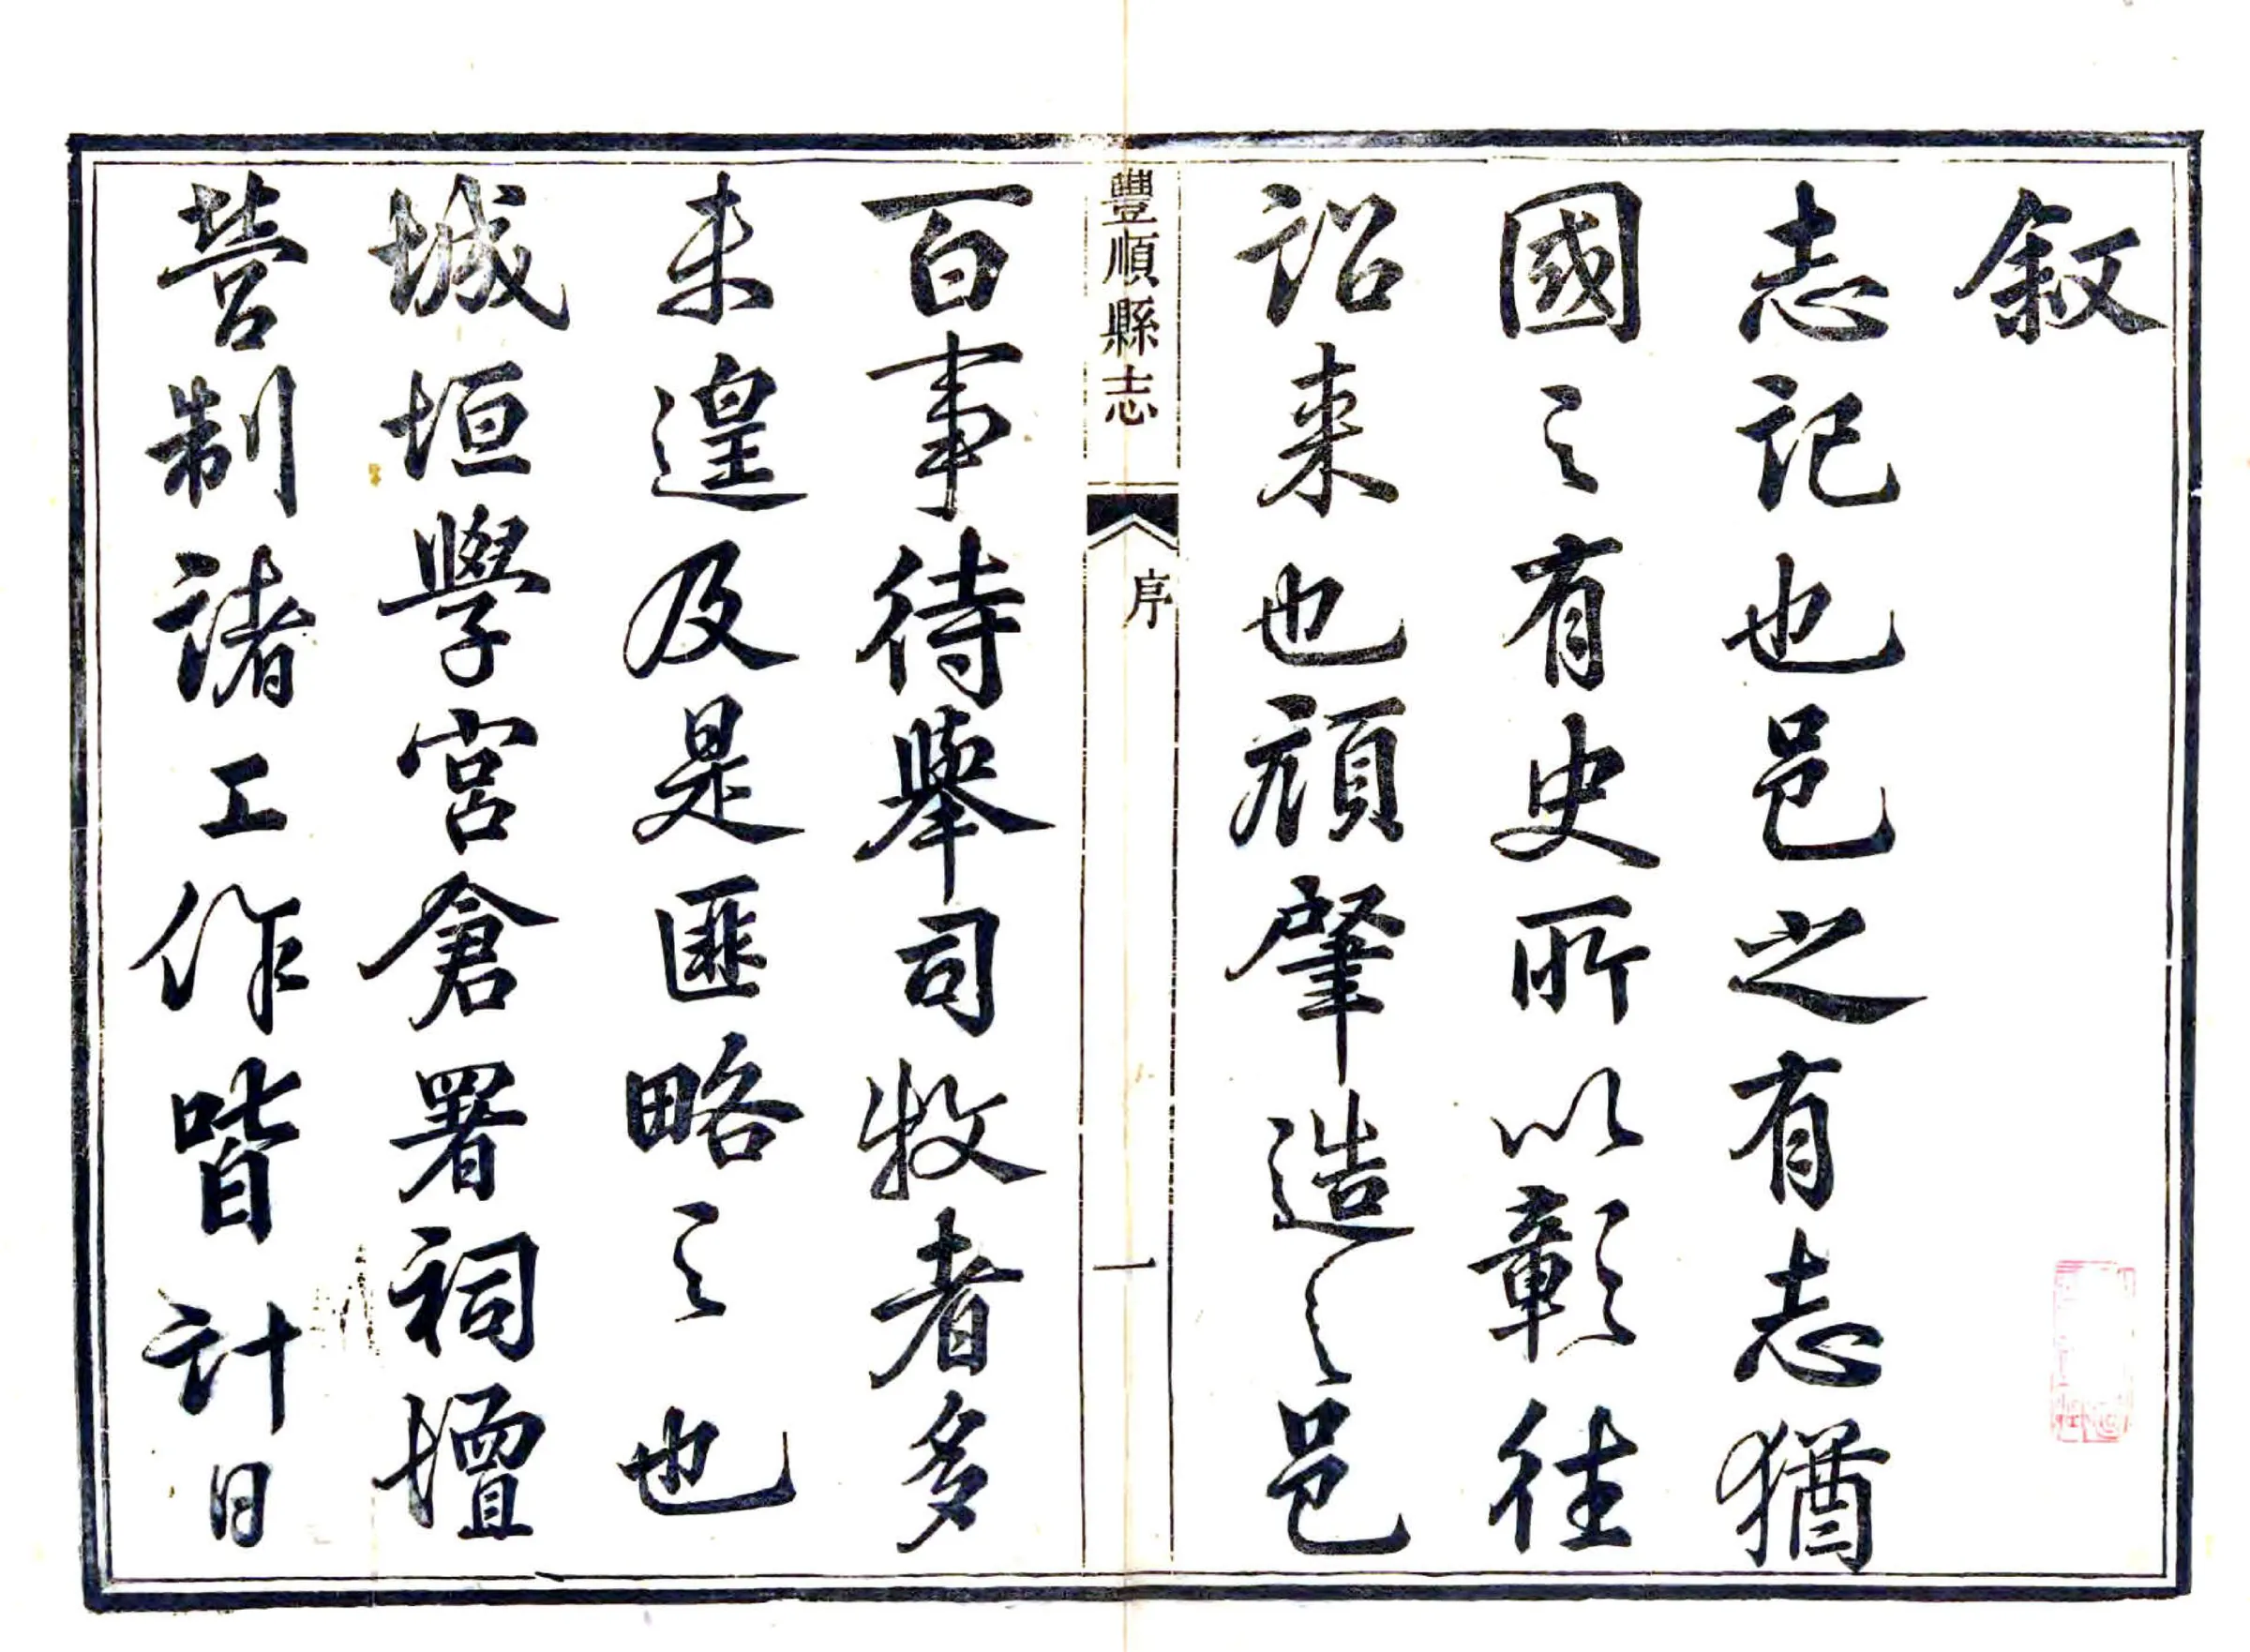 叙
志記也邑之有志猶
國之有史所以彰往
詔来也頋肇造之邑
豐順縣志
序
一
百事待舉司牧者多
未遑及是匪略之也
城垣學宮倉署祠壇
營制諸工作皆計日